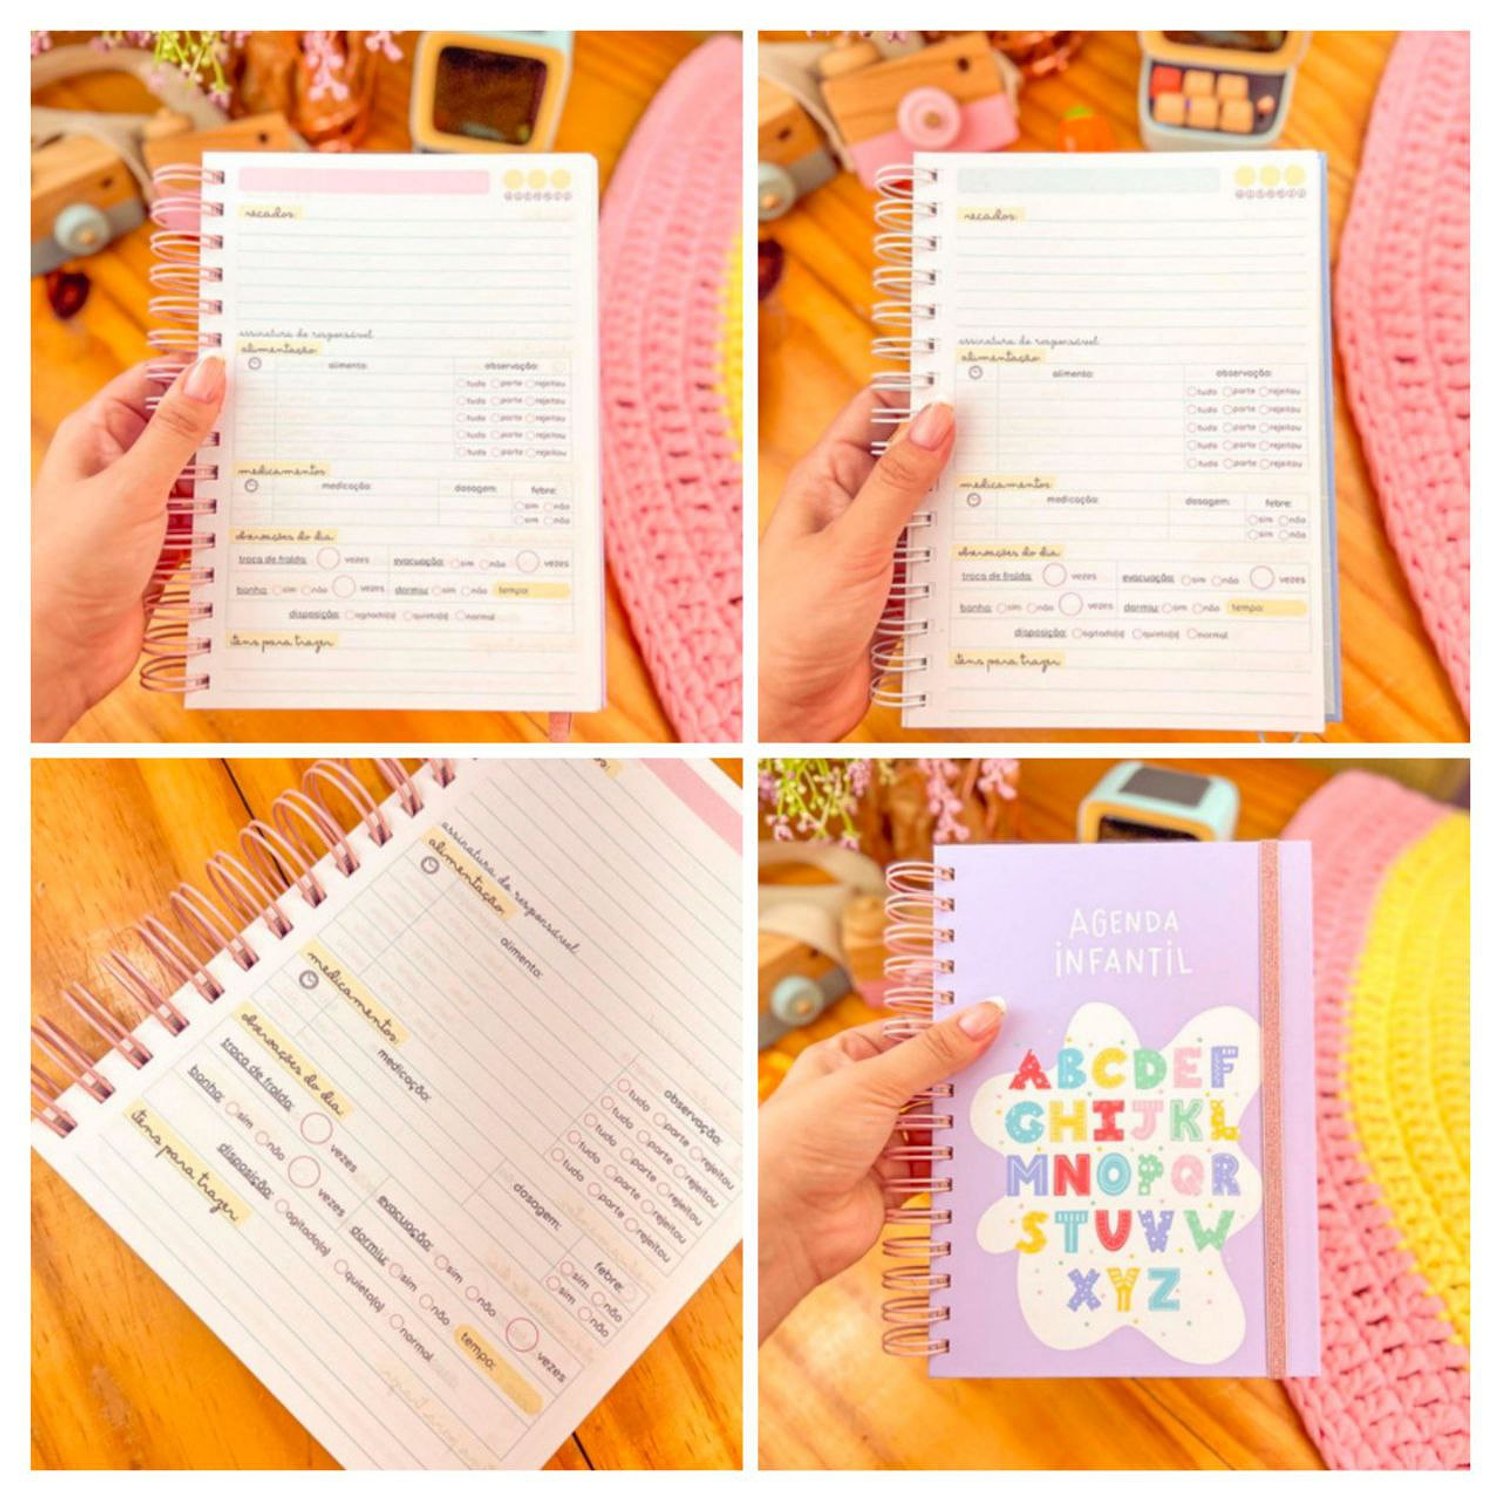 recados:
assinatura do responsável:
alimentação:
alimento: observação:
tudo parte rejeitou
tudo parte rejeitou
tudo parte rejeitou
tudo parte rejeitou
tudo parte rejeitou
medicamentos:
medicação: dosagem: febre:
sim não
sim não
obervações do dia:
troca de fralda: vezes evacuação: sim não vezes
banho: sim não vezes dormiu: sim não tempo:
disposição: agitado(a) quieto(a) normal
itens para trazer:
recados:
assinatura do responsável:
alimentação:
alimento: observação:
tudo parte rejeitou
tudo parte rejeitou
tudo parte rejeitou
tudo parte rejeitou
tudo parte rejeitou
medicamentos:
medicação: dosagem: febre:
sim não
sim não
obervações do dia:
troca de fralda: vezes evacuação: sim não vezes
banho: sim não vezes dormiu: sim não tempo:
disposição: agitado(a) quieto(a) normal
itens para trazer:
assinatura do responsável:
alimentação:
alimento: observação:
tudo parte rejeitou
tudo parte rejeitou
tudo parte rejeitou
tudo parte rejeitou
tudo parte rejeitou
medicamentos:
medicação: dosagem: febre:
sim não
sim não
obervações do dia:
troca de fralda: vezes evacuação: sim não vezes
banho: sim não vezes dormiu: sim não tempo:
disposição: agitado(a) quieto(a) normal
itens para trazer:
AGENDA
INFANTIL
ABCDEF
GHIJKL
MNOPQR
STUVW
XYZ